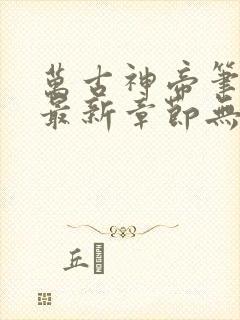 萬古神帝筆
最新章節無
丘